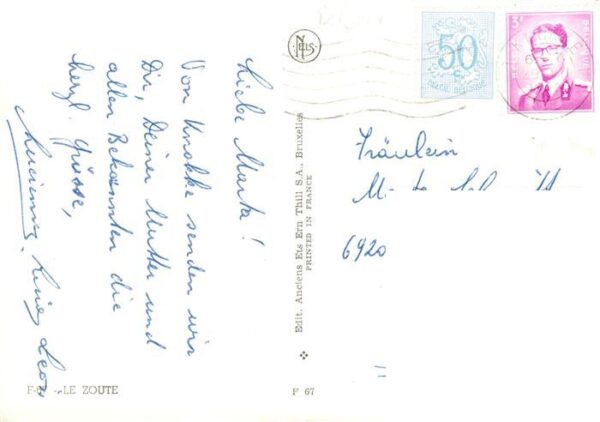 Liebe Marta!
Von Knokke senden wir
Dir, Deiner Mutter und
allen Bekannten die
herzl. Grüsse,
Leon
Fräulein
6920
NELS
50
C
3F
Edit. Anciens Ets Ern Thill S.A., Bruxelles
PRINTED IN FRANCE
LE ZOUTE
F 67